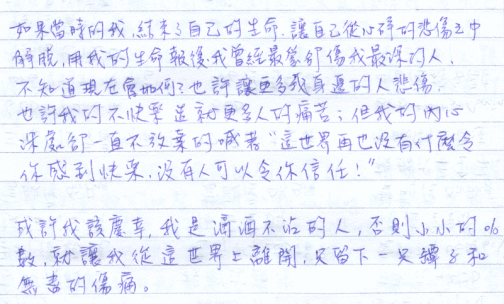 如果當時的我,結束了自己的生命,讓自己從心碎的悲傷之中
解脫,用我的生命報復我曾經最愛卻傷我最深的人,
不知道現在會如何?也許讓更多我身邊的人悲傷,
也許我的不快樂造就更多人的痛苦;但我的內心
深處卻一直不放棄的喊著"這世界再也沒有什麼令
你感到快樂,沒有人可以令你信任!"
或許我該慶幸,我是滴酒不沾的人,否則小小的%
數,就讓我從這世界上離開,只留下一只罈子和
無盡的傷痛。